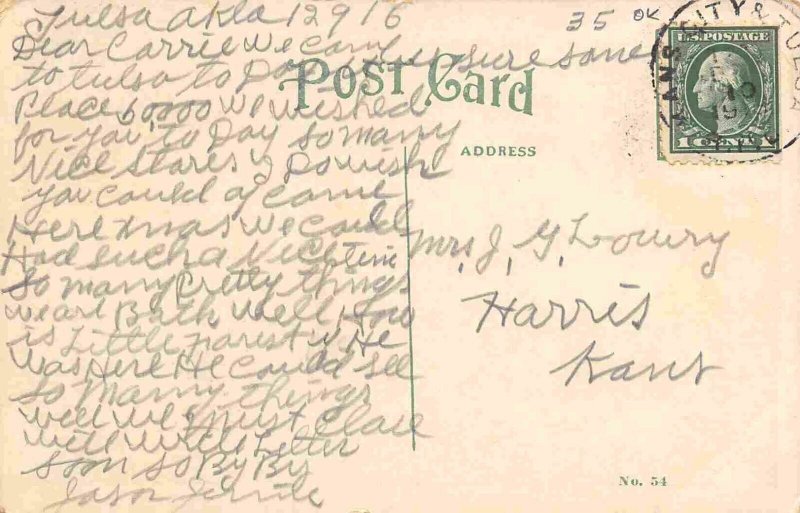 Tulsa Okla 12 9 16
Dear Carrie We came
to tulsa to Day sure some
Place 60,000 We wished
for you to Day So many
Nice Stores I Do wish
you could of came
Here Xmas We could
Had such a Nice time
So many Pretty things
we are Both Well How
is Little Forest if He
was Here He could see
So many things
Well We Must Close
Will Write Letter
soon So By By
35 OK
KANS CITY & TULSA
U.S. POSTAGE
1 CENT 1
Post Card
ADDRESS
Mrs, J, G, Lowry
Harris
Kans
No. 54